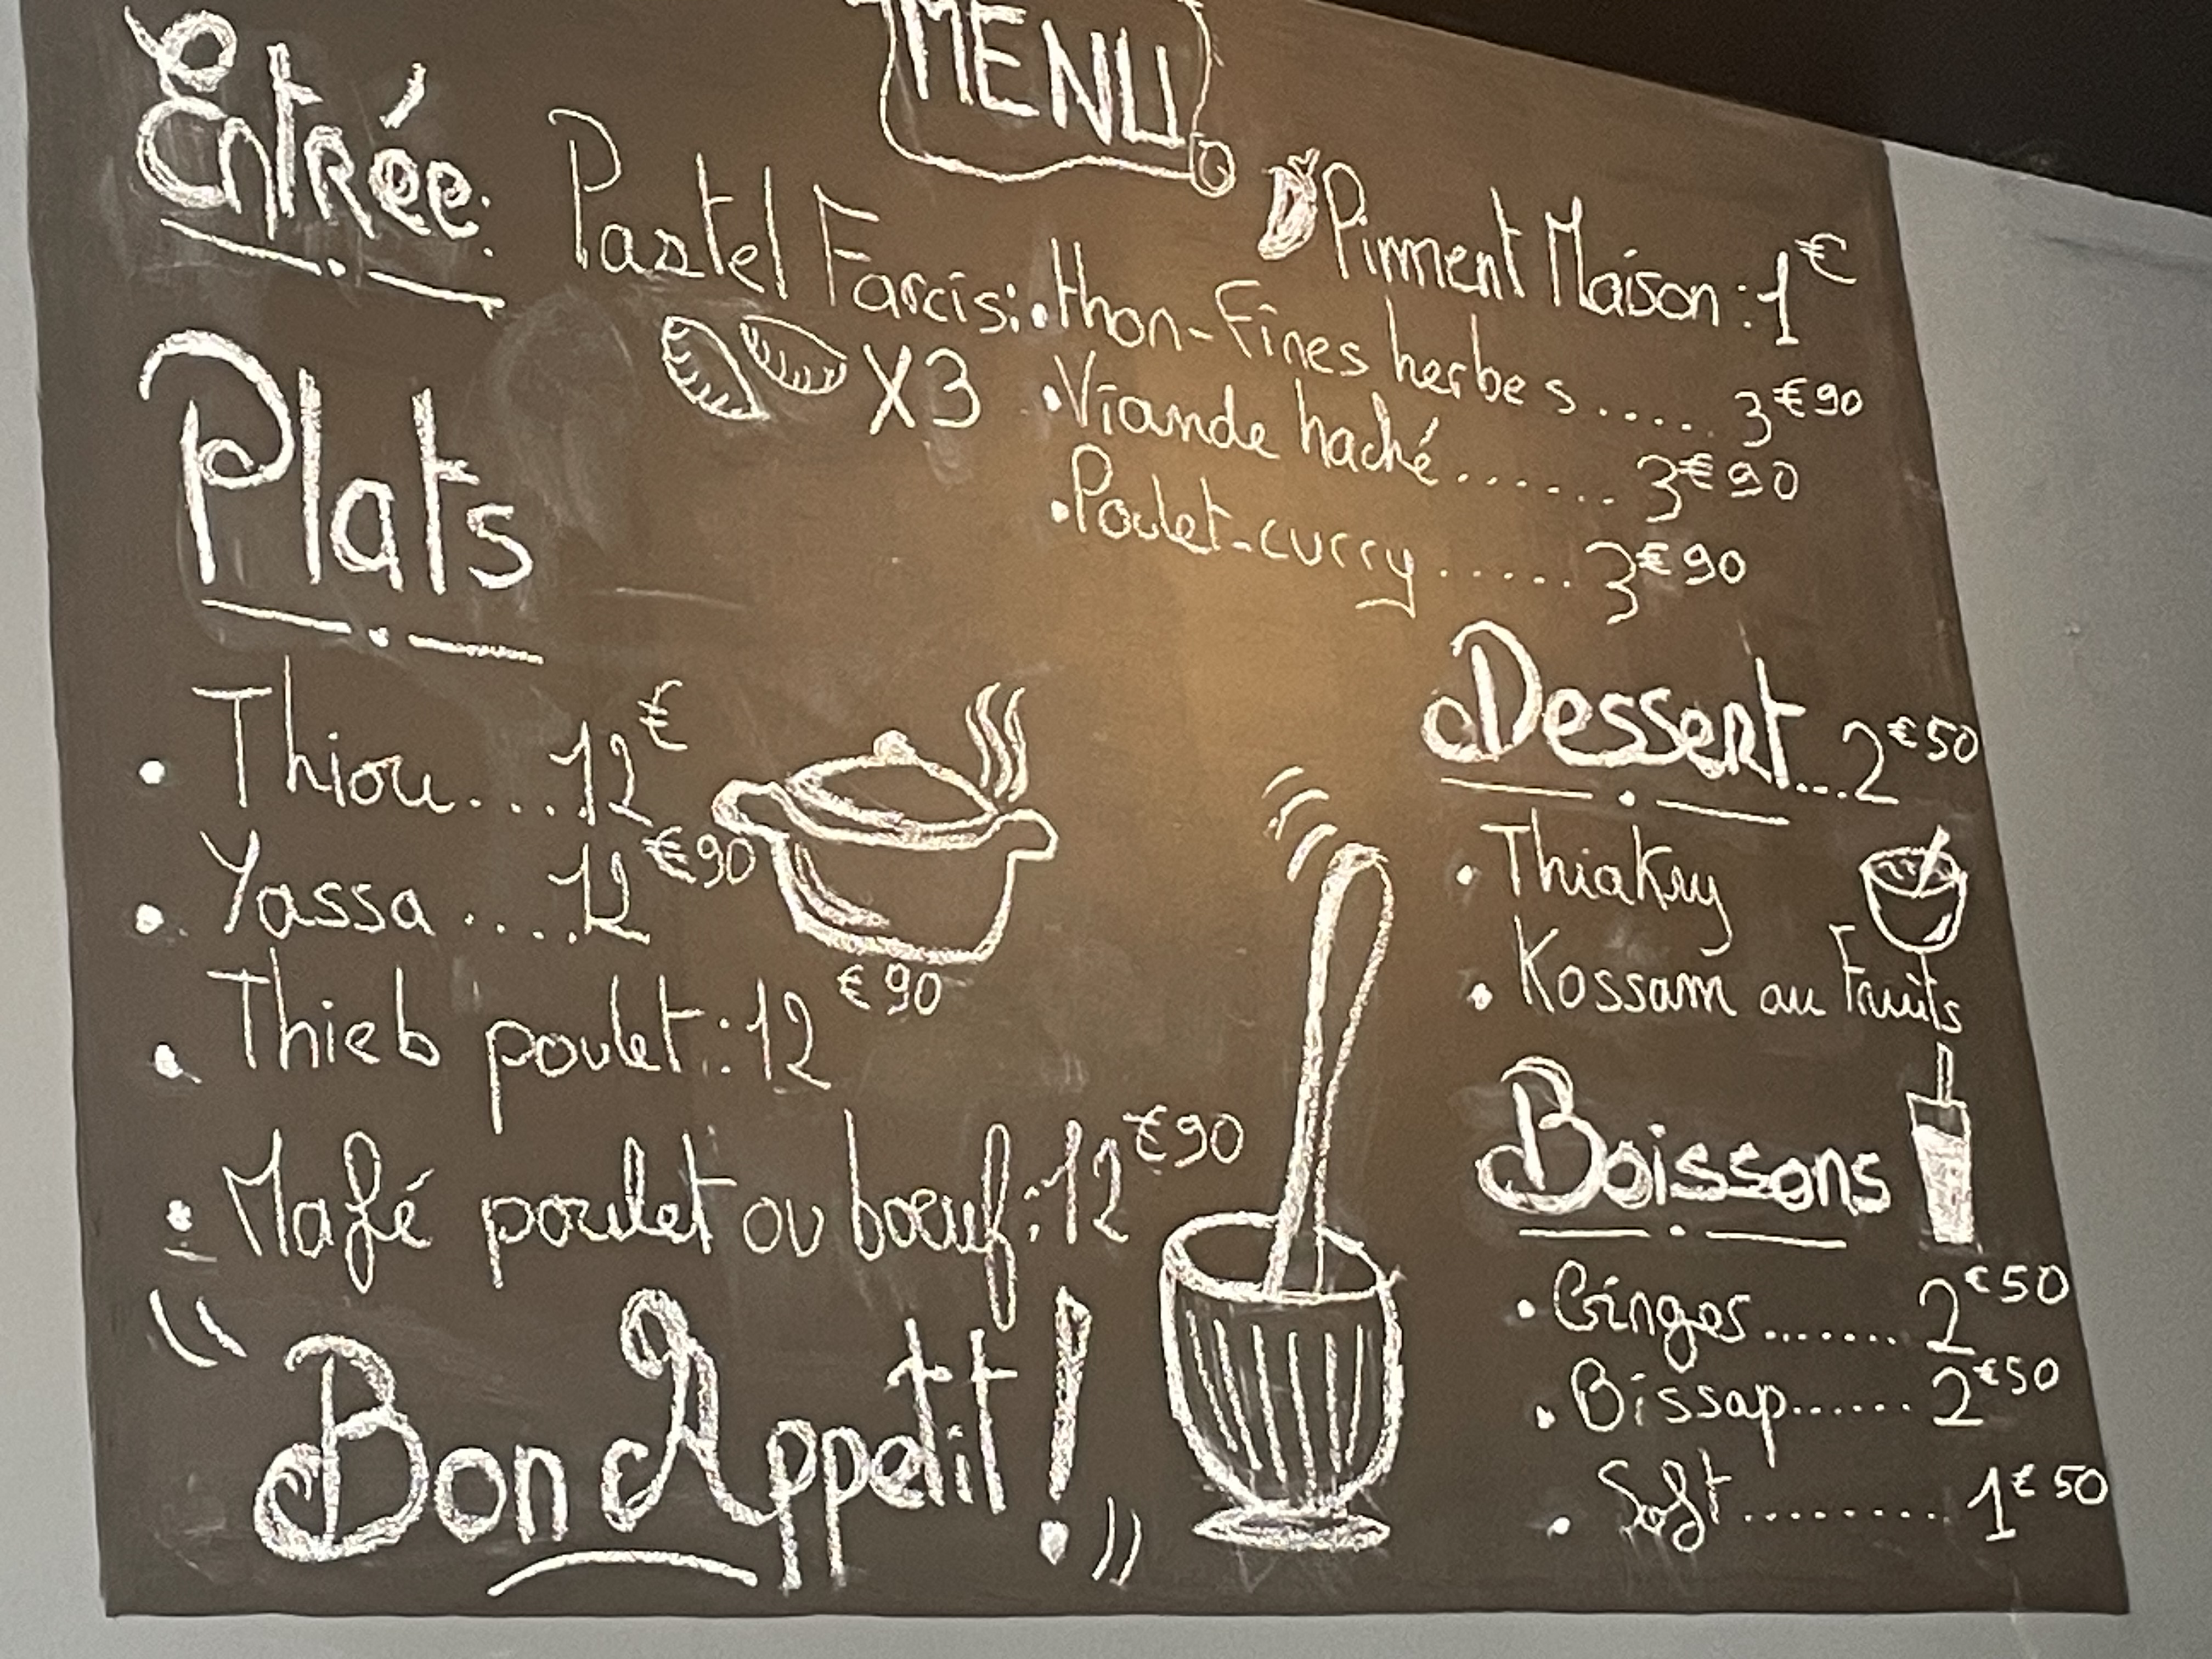 MENU
Entrée:
Pastel Farcis:
X3
Pimment Maison : 1€
• thon-fines herbes ..... 3€90
• Viande haché ...... 3€90
• Poulet-curry ...... 3€90
Plats
• Thiou ... 12€
• Yassa .... 12€90
• Thieb poulet : 12€90
• Mafé poulet ou boeuf : 12€90
Dessert ... 2€50
• Thiakry
• Kossam au Fruits
Boissons
• Ginger ....... 2€50
• Bissap ...... 2€50
• Soft ......... 1€50
" Bon Appetit ! "